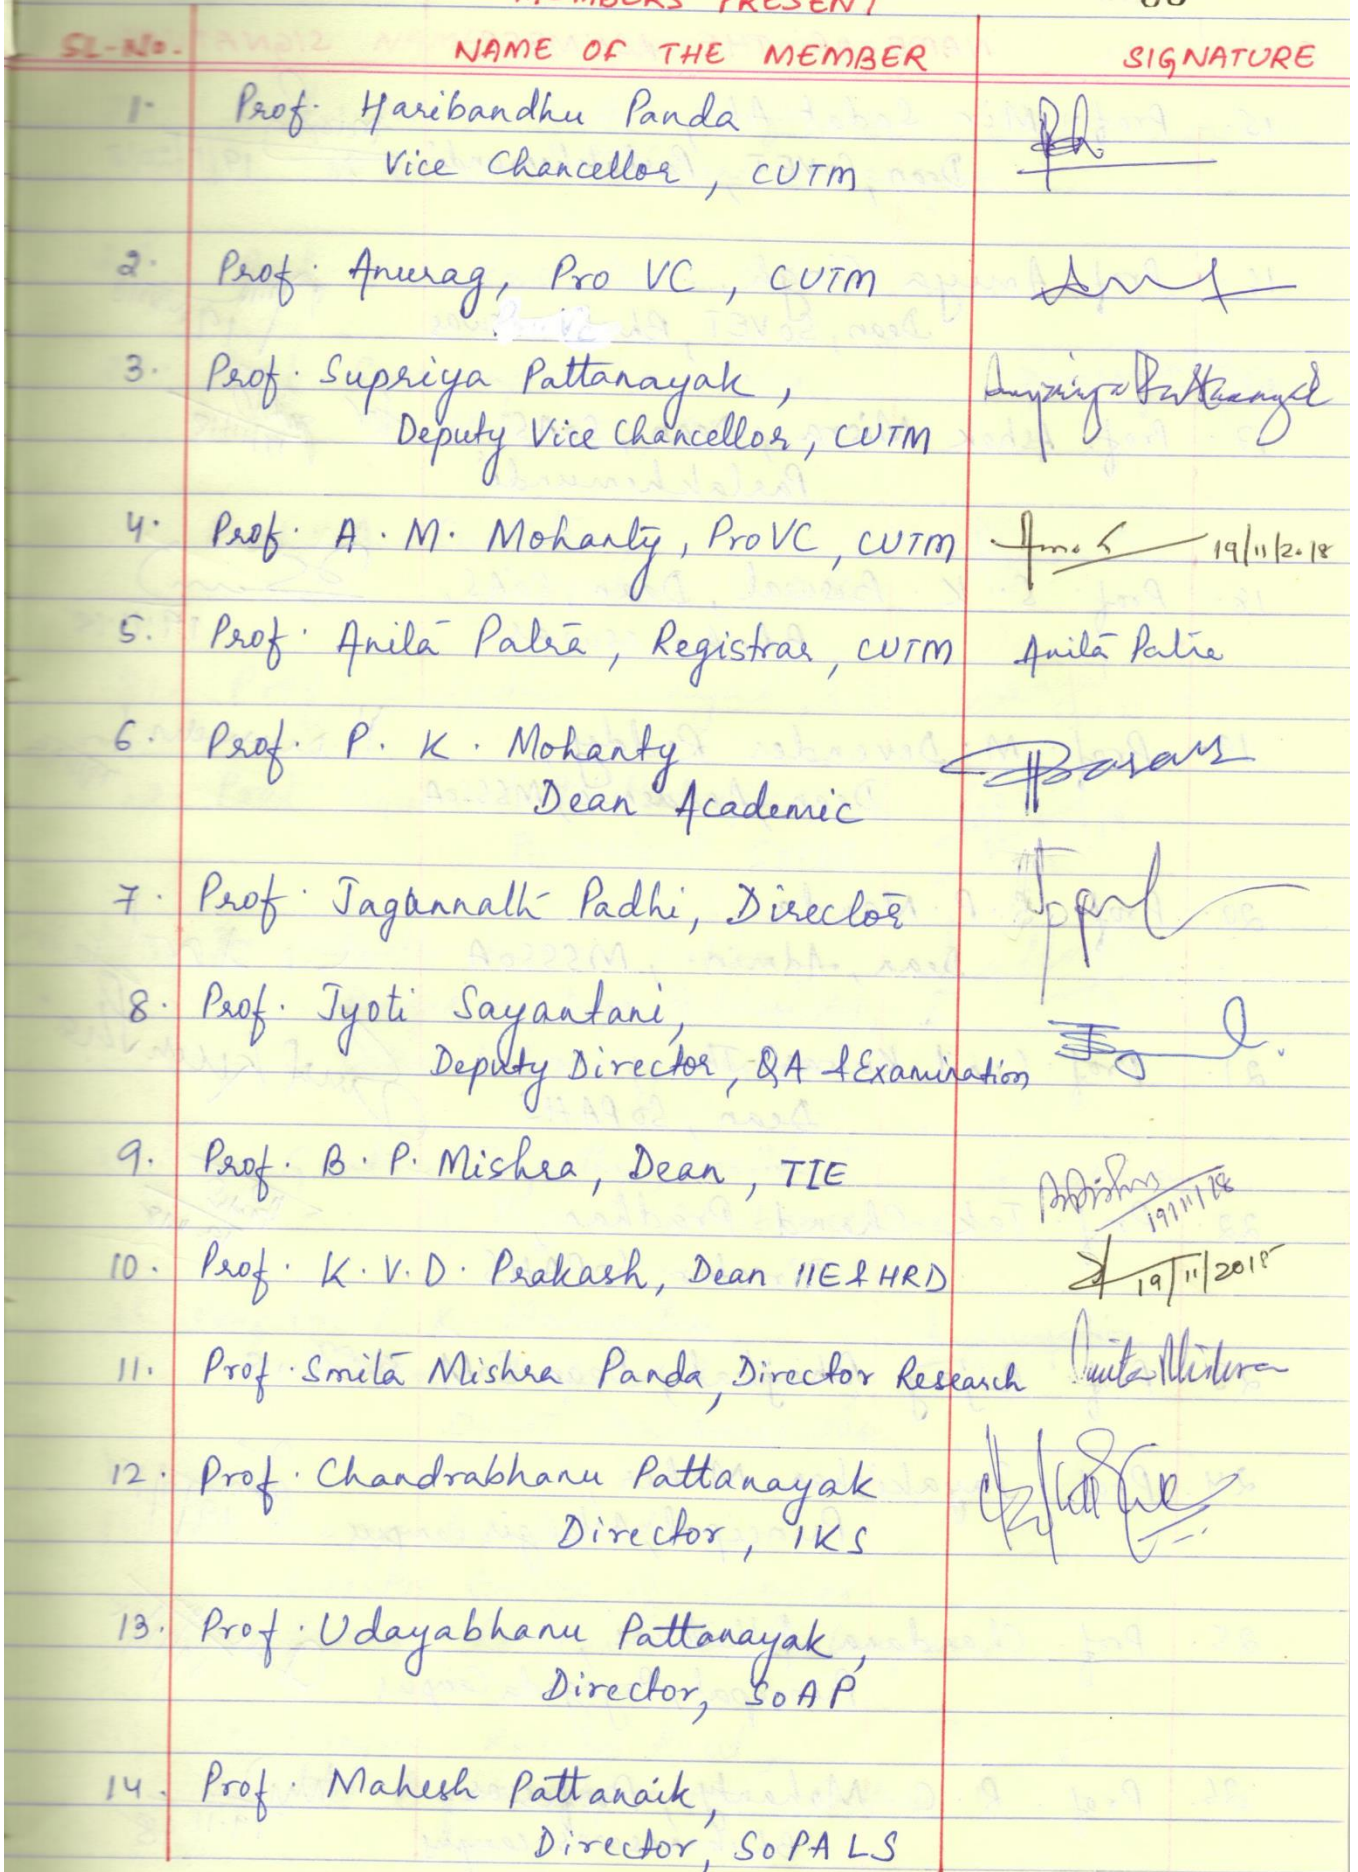 MEMBERS PRESENT
SL-No. NAME OF THE MEMBER SIGNATURE
1. Prof. Haribandhu Panda
Vice Chancellor, CUTM
2. Prof. Anurag, Pro VC, CUTM
3. Prof. Supriya Pattanayak,
Deputy Vice Chancellor, CUTM
Supriya Pattanayak
4. Prof. A. M. Mohanty, ProVC, CUTM 19/11/2018
5. Prof. Anita Patra, Registrar, CUTM Anita Patra
6. Prof. P. K. Mohanty
Dean Academic
7. Prof. Jagannath Padhi, Director
8. Prof. Jyoti Sayantani,
Deputy Director, QA & Examination
9. Prof. B. P. Mishra, Dean, TIE
19/11/18
10. Prof. K. V. D. Prakash, Dean IIE & HRD 19/11/2018
11. Prof. Smita Mishra Panda, Director Research Smita Mishra
12. Prof. Chandrabhanu Pattanayak
Director, IKS
13. Prof. Udayabhanu Pattanayak,
Director, SoAP
14. Prof. Mahesh Pattanaik,
Director, SoPALS